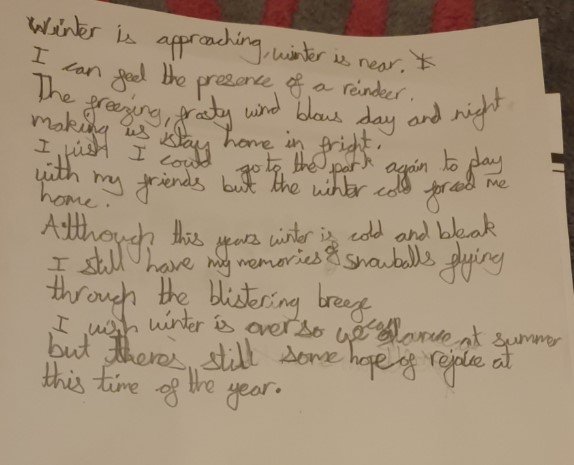 Winter is approaching, winter is near.
I can feel the presence of a reindeer.
The freezing, frosty wind blows day and night
making us stay home in fright.
I wish I could go to the park again to play
with my friends but the winter cold forced me
home.
Although this years winter is cold and bleak
I still have my memories of snowballs flying
through the breeze blistering
I wish winter is over so we can glance at summer
but theres still some hope of rejoice at
this time of the year.